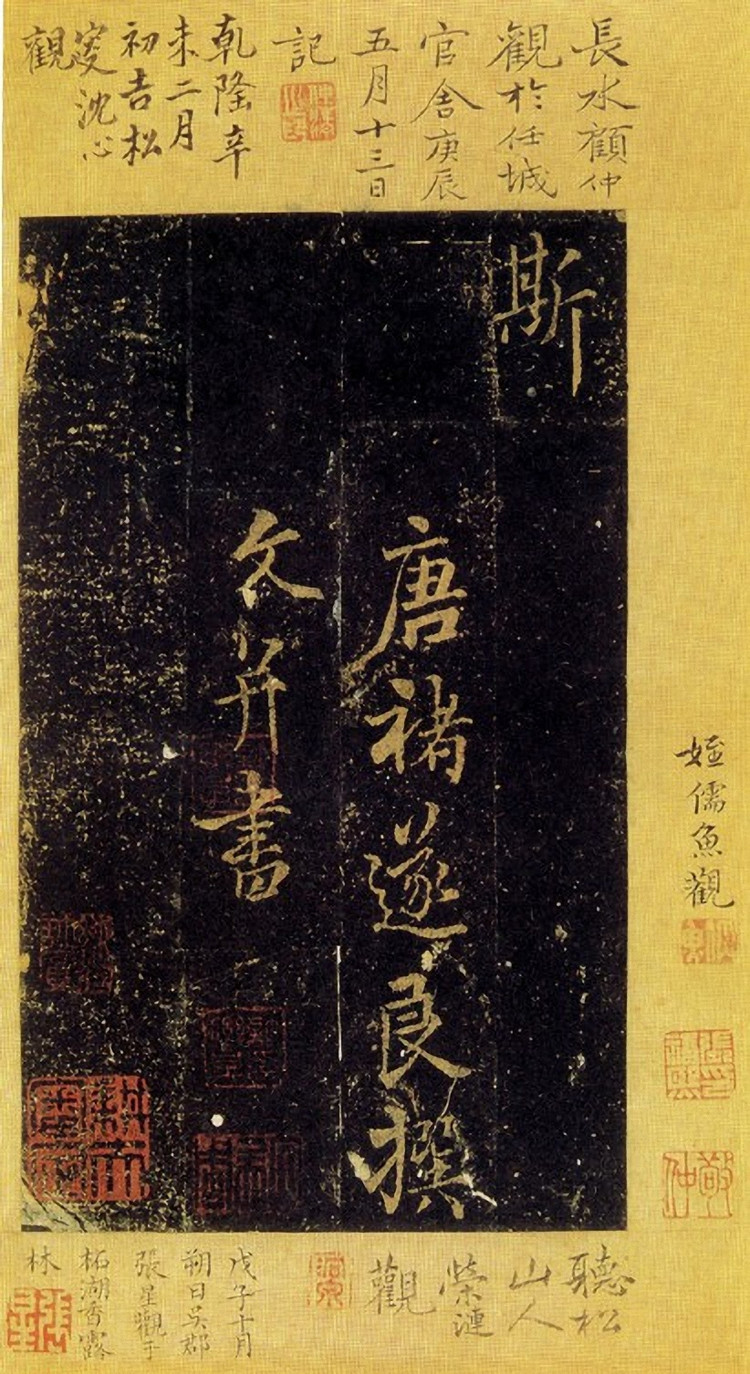 長水顧仲
觀於任城
官舍庚辰
五月十三日
記
乾隆辛
未二月
初吉松
沈心
觀
斯
唐褚遂良撰
文并書
姪儒魚觀
敬仲
聽松
山人
榮漣
觀
戊子十月
朔日吳郡
張星觀于
柘湖香露
林